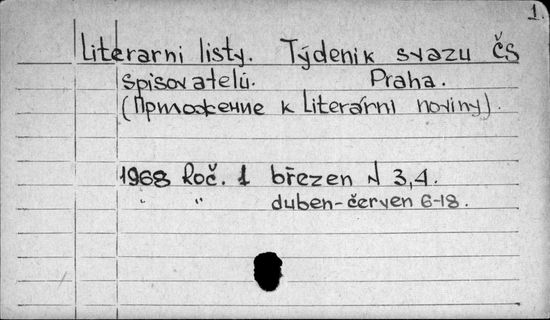 1.
Literarni listy. Týdenik svazu ČS
spisovatelů. Praha.
(Приложение к Literární noviny).
1968 Roč. 1 březen N 3,4.
" " duben-červen 6-18.